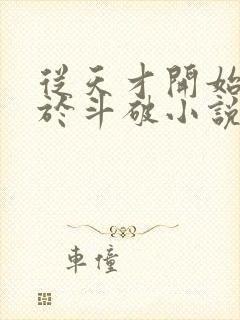 從天才開始
於斗破小說
車憧